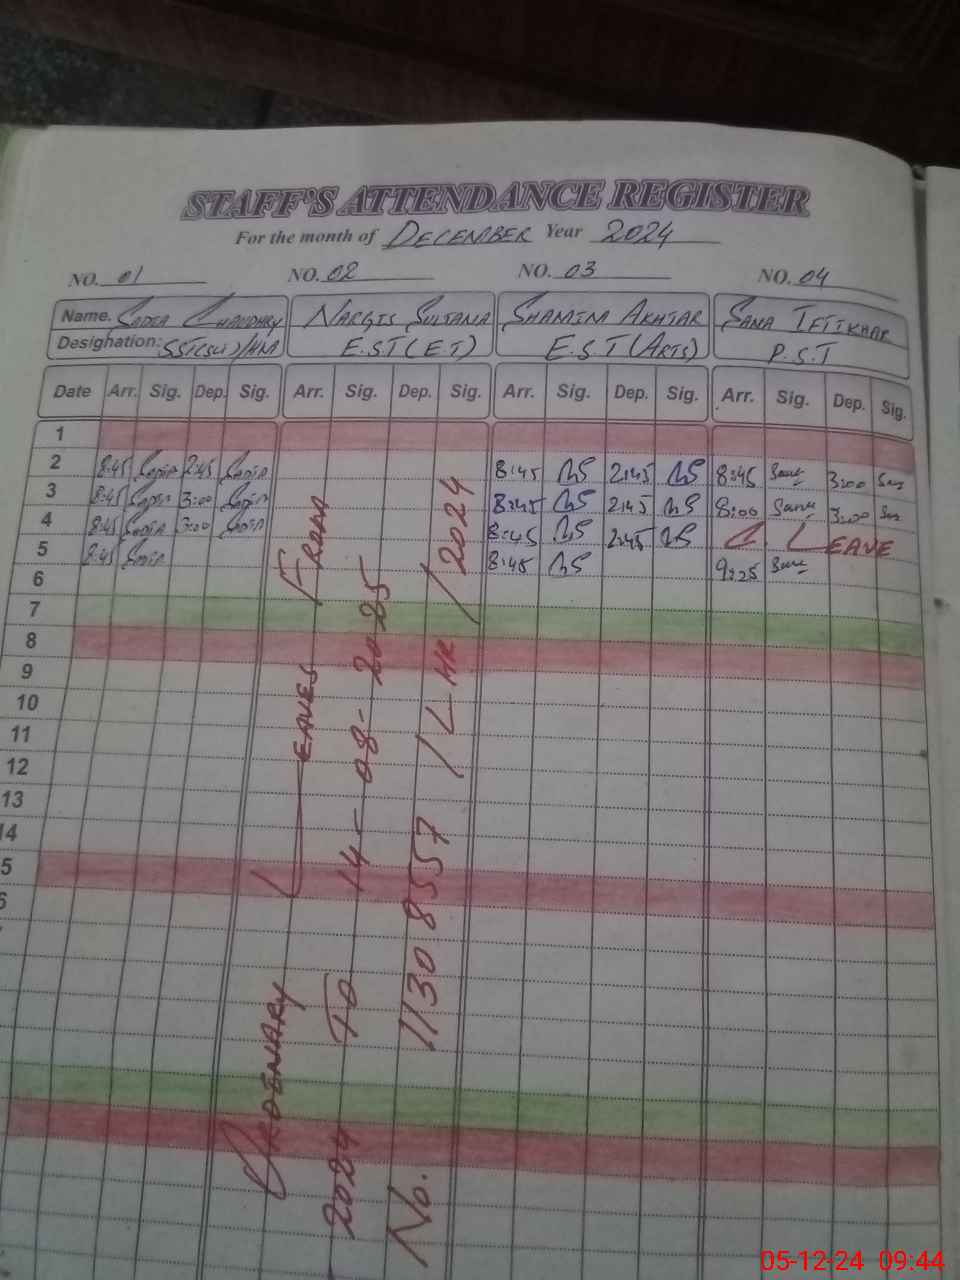 STAFF'S ATTENDANCE REGISTER
For the month of DECEMBER Year 2024
NO. 01 NO. 02 NO. 03 NO. 04
Name. SADIA CHAUDHRY NARGIS SULTANA SHAMIM AKHTAR SANA IFTIKHAR
Designation: E.S.T (E.T) E.S.T (ARTS) P.S.T
Date Arr. Sig. Dep. Sig. Arr. Sig. Dep. Sig. Arr. Sig. Dep. Sig. Arr. Sig. Dep. Sig.
1
2 8:45 Sadia 2:45 Sadia 8:45 2:45 8:45 Sana 3:00 Sana
3 8:45 Sadia 3:00 Sadia 8:45 2:45 8:00 Sana 3:00 Sana
4 8:45 Sadia 3:00 Sadia 8:45 2:45 C. LEAVE
5 8:45 Sadia 8:45 9:25 Sana
6
7
8
9
10
11
12
13
14
5
6
LEAVES FROM
2024 TO 14-08-2025
No. 1130 8557 /LHR /2024
05-12-24 09:44